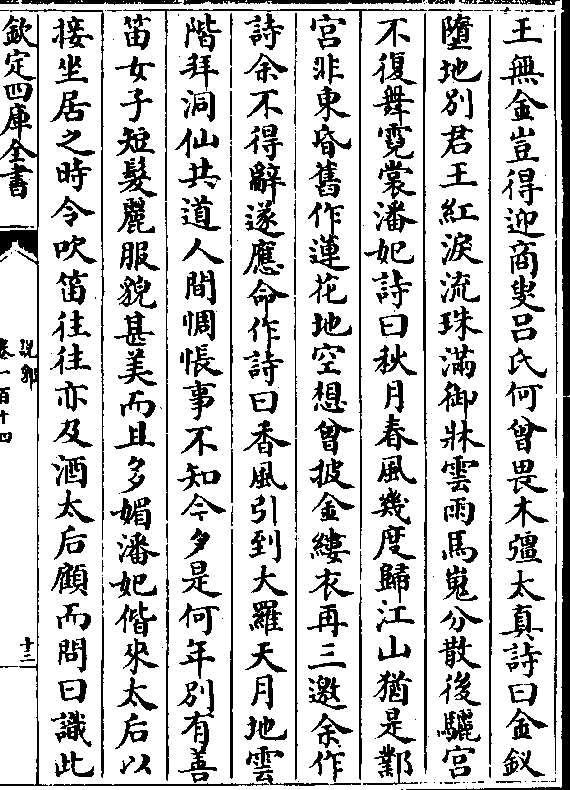 王無金豈得迎商叟吕氏何曽畏木彊太真詩曰金釵
墮地別君王紅淚流珠滿御牀雲雨馬嵬分散後驪宮
不復舞霓裳潘妃詩曰秋月春風幾度歸江山猶是鄴
宮非東昏舊作蓮花地空想曽披金縷衣再三邀余作
詩余不得辭遂應命作詩曰香風引到大羅天月地雲
階拜洞仙共道人間惆悵事不知今夕是何年別有善
笛女子短髮麗服貌甚美而且多媚潘妃偕來太后以
接坐居之時令吹笛往往亦及酒太后顧而問曰識此
欽定四庫全書
說郛
卷一百十四
十三